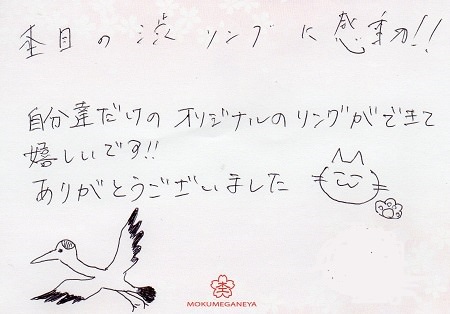 杢目の渋リングに感動!!
自分達だけのオリジナルのリングができて
嬉しいです!!
ありがとうございました
MOKUMEGANEYA